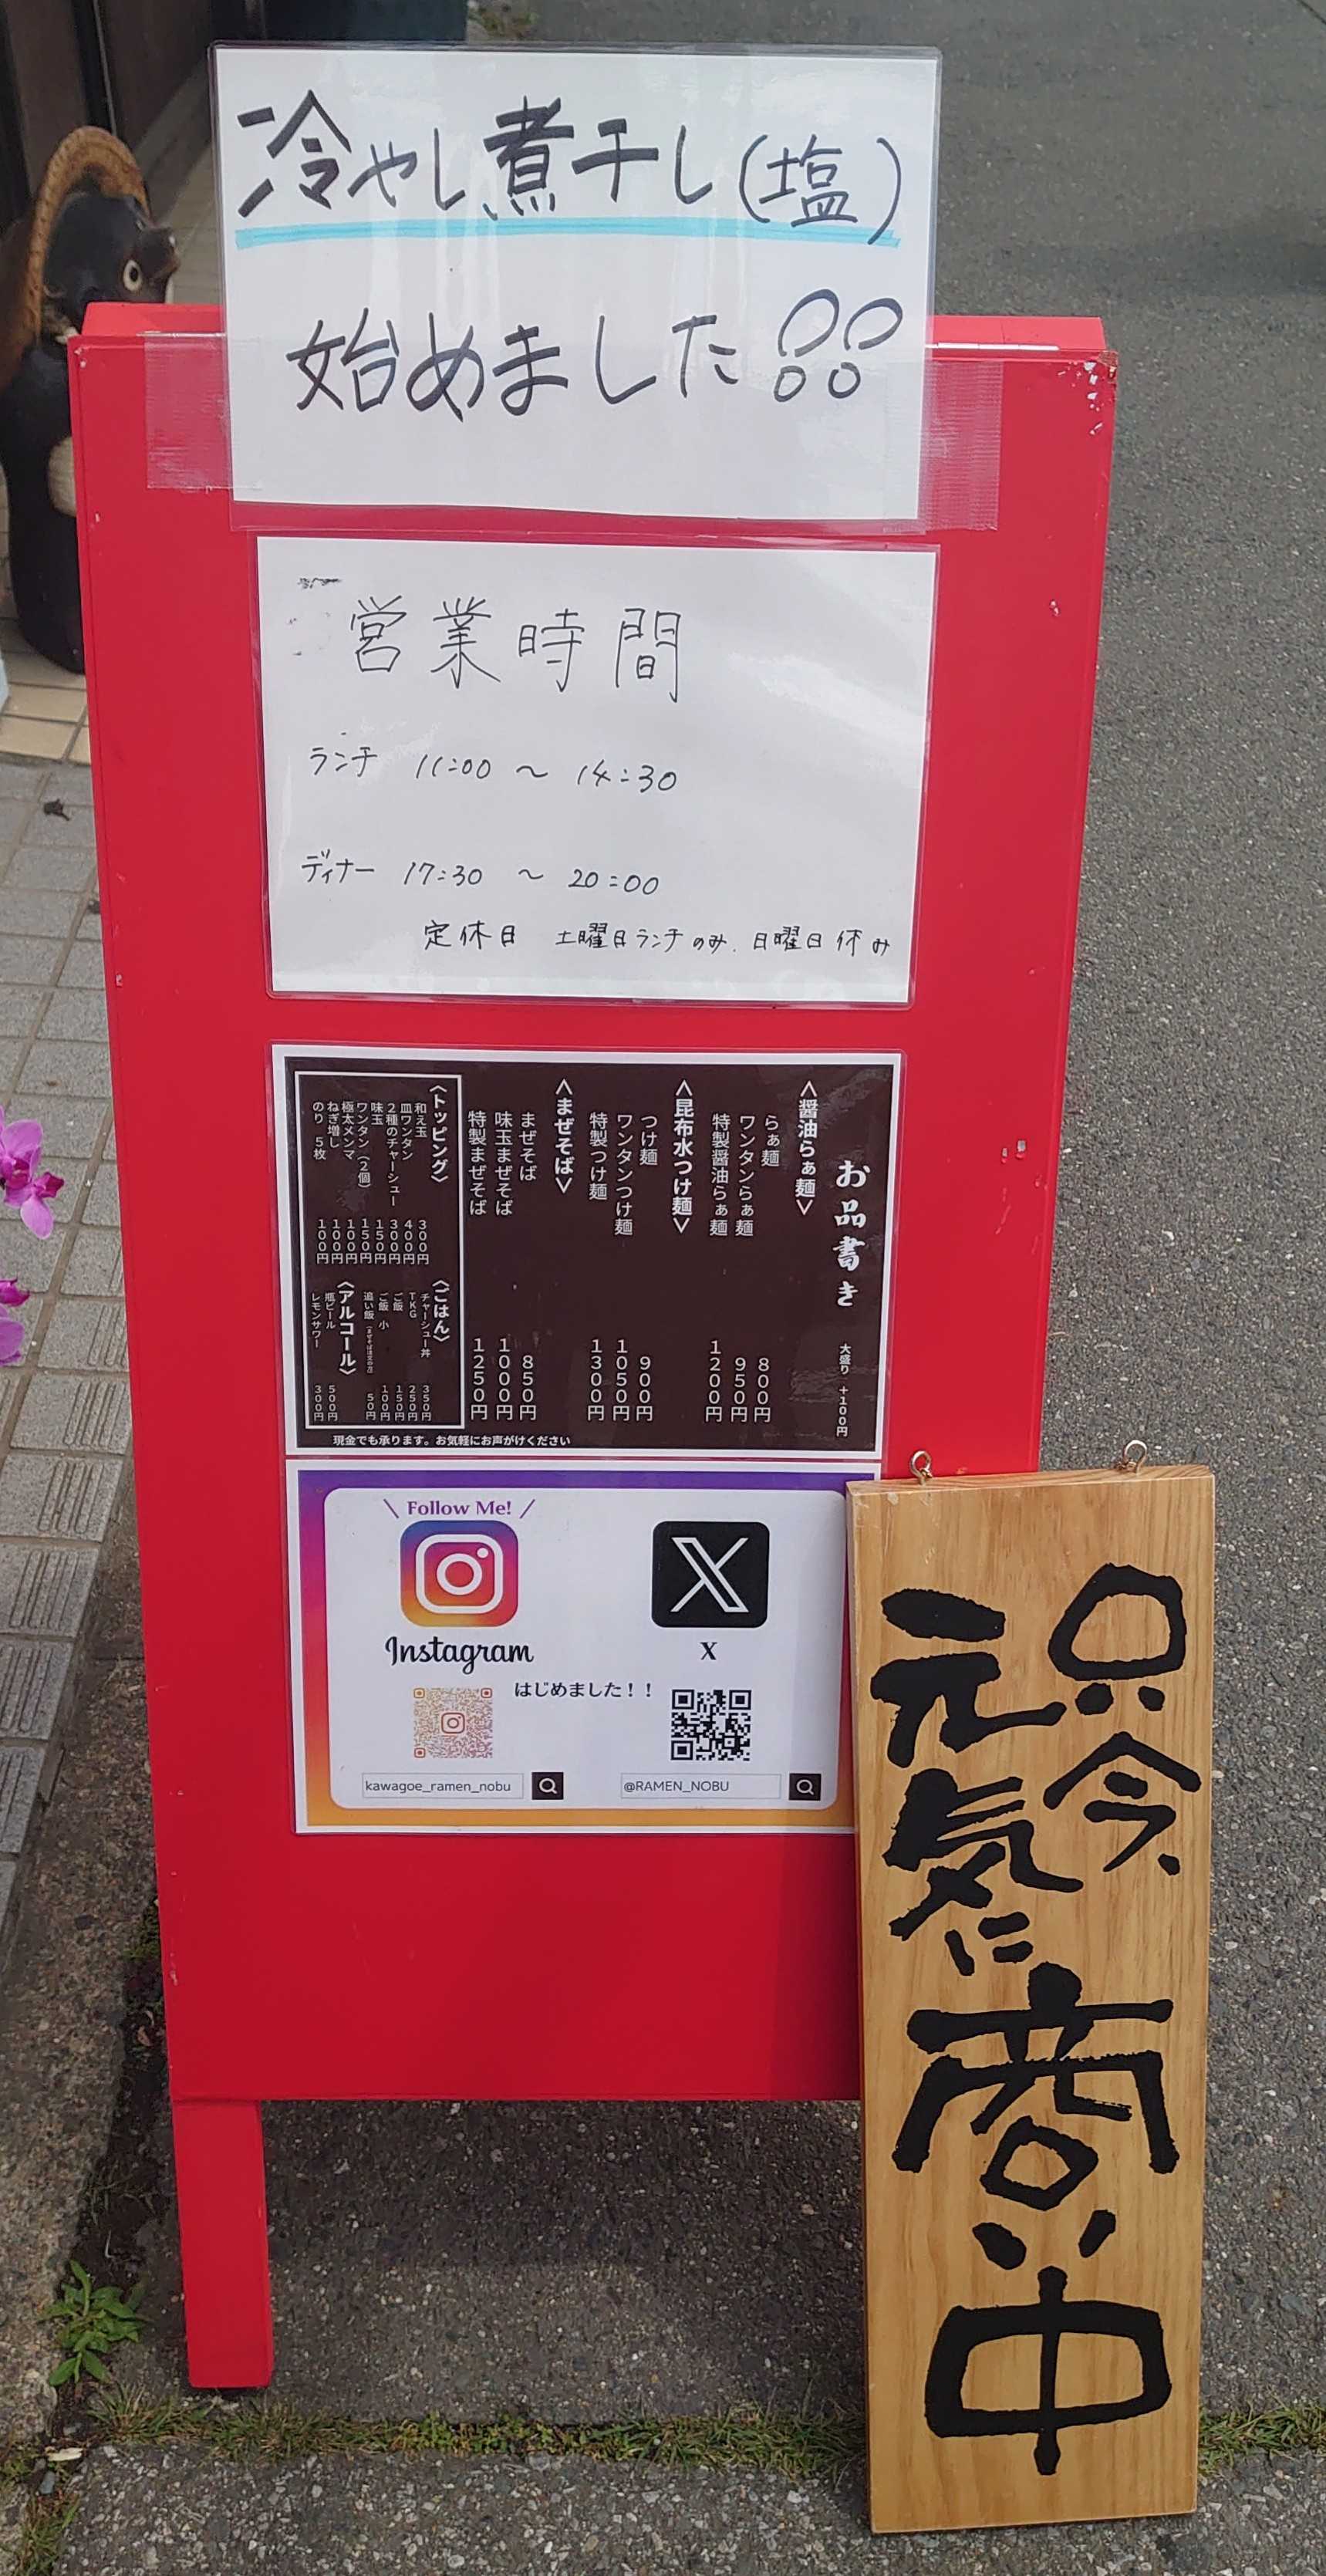 冷やし煮干し(塩)
始めました!!
営業時間
ランチ 11:00 ～ 14:30
ディナー 17:30 ～ 20:00
定休日 土曜日ランチのみ、日曜日休み
お品書き 大盛り +100円
<醤油らぁ麺>
らぁ麺 800円
ワンタンらぁ麺 950円
特製醤油らぁ麺 1200円
<昆布水つけ麺>
つけ麺 900円
ワンタンつけ麺 1050円
特製つけ麺 1300円
<まぜそば>
まぜそば 850円
味玉まぜそば 1000円
特製まぜそば 1250円
<トッピング>
和え玉 300円
皿ワンタン 400円
2種のチャーシュー 300円
味玉 150円
ワンタン(2個) 150円
極太メンマ 100円
ねぎ増し 100円
のり 5枚 100円
<ごはん>
チャーシュー丼 350円
TKG 250円
ご飯 150円
ご飯 小 100円
追い飯 50円
<アルコール>
瓶ビール 500円
レモンサワー 300円
現金でも承ります。お気軽にお声がけください
\ Follow Me! /
Instagram
X
はじめました！！
kawagoe_ramen_nobu
@RAMEN_NOBU
只今、
元気に
商い中